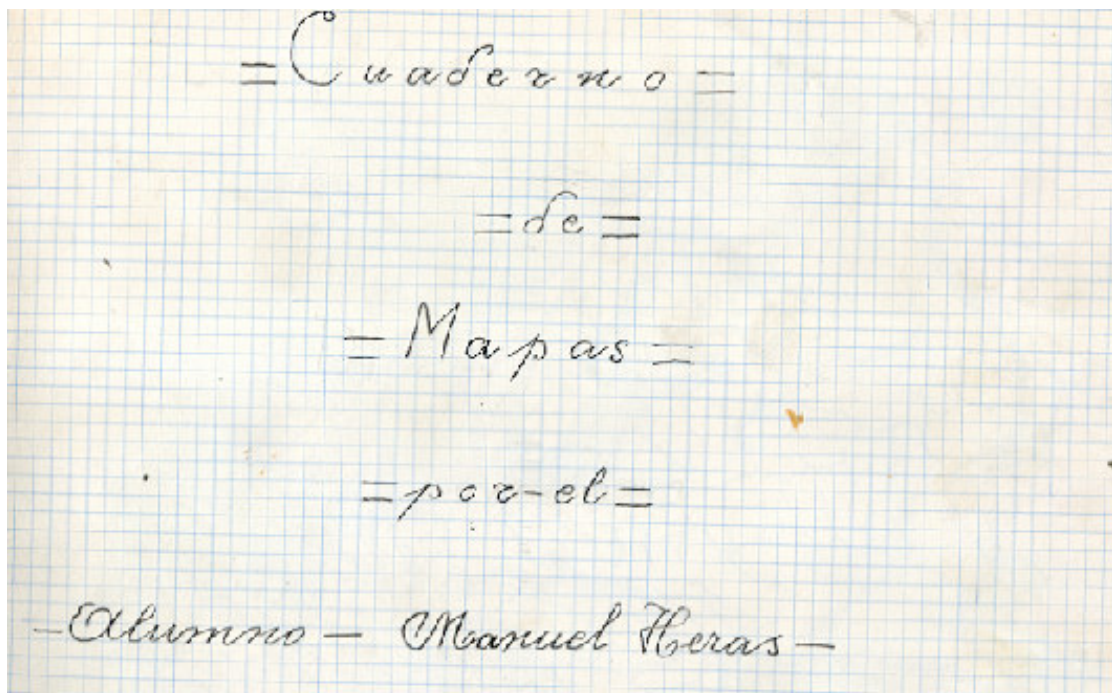 = Cuaderno =
= de =
= Mapas =
= por-el =
- Alumno - Manuel Heras -